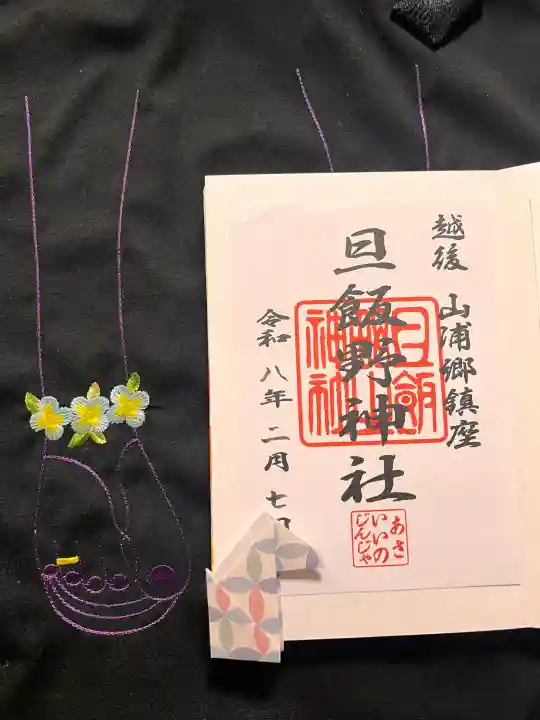 越後 山浦郷鎮座
旦飯野神社
令和八年二月七日
旦飯野
神社
あさ
いいの
じんじゃ